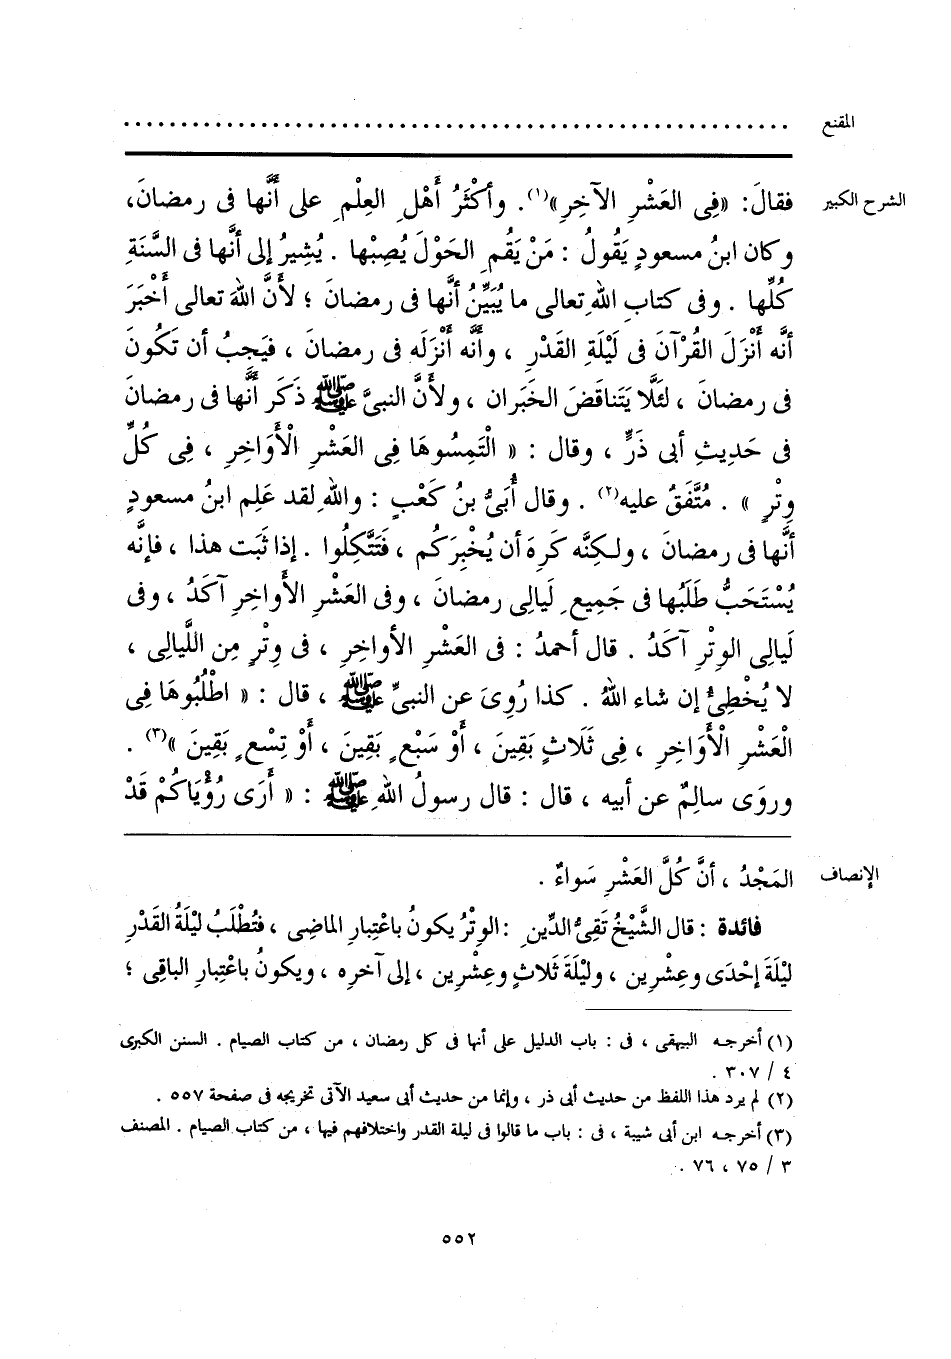 المقنع ........................................................
الشرح الكبير فقالَ: «فِى العَشْرِ الآخِرِ»(١). وأكْثَرُ أَهْلِ العِلْمِ على أنَّها فى رمضانَ،
وكان ابنُ مسعودٍ يَقُولُ : مَنْ يَقُمِ الحَوْلَ يُصِبْها . يُشِيرُ إلى أنَّها فى السَّنَةِ
كُلِّها . وفى كتابِ اللهِ تعالى ما يُبَيِّنُ أنَّها فى رمضانَ ؛ لأَنَّ اللهَ تعالى أخْبَرَ
أنَّه أنْزَلَ القُرْآنَ فى لَيْلَةِ القَدْرِ ، وأنَّه أنْزَلَه فى رمضانَ ، فيَجِبُ أن تَكُونَ
فى رمضانَ ، لئَلَّا يَتَناقَضَ الخَبَران ، ولأَنَّ النبىَّ ﷺ ذَكَر أنَّها فى رمضانَ
فى حَدِيثِ أبى ذَرٍّ ، وقال : « الْتَمِسُوهَا فِى العَشْرِ الْأَوَاخِرِ ، فِى كُلِّ
وِتْرٍ » . مُتَّفَقٌ عليه(٢) . وقال أُبَىُّ بنُ كَعْبٍ : واللهِ لقد عَلِم ابنُ مسعودٍ
أنَّها فى رمضانَ ، ولكِنَّه كَرِهَ أن يُخْبِرَكُم ، فَتَتَّكِلُوا . إذا ثَبَت هذا ، فإنَّه
يُسْتَحَبُّ طَلَبُها فى جَمِيعِ لَيالِى رمضانَ ، وفى العَشْرِ الأَواخِرِ آكَدُ ، وفى
لَيالِى الوِتْرِ آكَدُ . قال أحمدُ : فى العَشْرِ الأواخِرِ ، فى وِتْرٍ مِن اللَّيالِى ،
لا يُخْطِئُ إن شاء اللهُ . كذا رُوِىَ عن النبىِّ ﷺ ، قال : « اطْلُبُوهَا فِى
الْعَشْرِ الْأَوَاخِرِ ، فِى ثَلَاثٍ بَقِينَ ، أَوْ سَبْعٍ بَقِينَ ، أَوْ تِسْعٍ بَقِينَ »(٣) .
وروَى سالِمٌ عن أبيه ، قال : قال رسولُ اللهِ ﷺ : « أَرَى رُؤْيَاكُمْ قَدْ
الإنصاف المَجْدُ ، أنَّ كُلَّ العَشْرِ سَواءٌ .
فائدة : قال الشَّيْخُ تَقِىُّ الدِّينِ : الوِتْرُ يكونُ باعْتِبارِ الماضِى ، فتُطْلَبُ ليْلَةُ القَدْرِ
ليْلَةَ إحْدَى وعِشْرِين ، وليْلَةَ ثَلاثٍ وعِشْرِين ، إلى آخرِه ، ويكونُ باعْتِبارِ الباقِى ؛
(١) أخرجه البيهقى ، فى : باب الدليل على أنها فى كل رمضان ، من كتاب الصيام . السنن الكبرى
٤ / ٣٠٧ .
(٢) لم يرد هذا اللفظ من حديث أبى ذر ، وإنما من حديث أبى سعيد الآتى تخريجه فى صفحة ٥٥٧ .
(٣) أخرجه ابن أبى شيبة ، فى : باب ما قالوا فى ليلة القدر واختلافهم فيها ، من كتاب الصيام . المصنف
٣ / ٧٥ ، ٧٦ .
٥٥٢